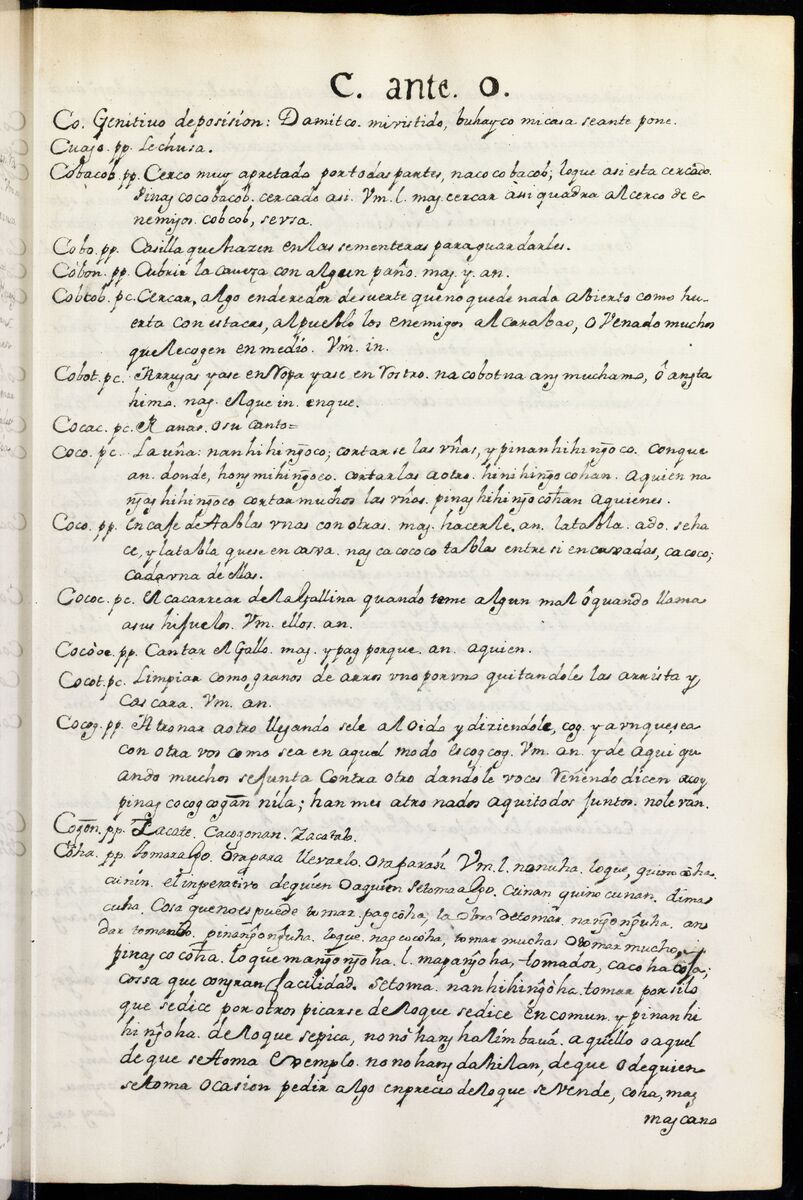 C. ante. O.
Co. Genitivo deposision: Damitco. mivistido, buhayco micasa seante pone.
Cuago. pp. Lechusa.
Cobacob. pp. Cerco muy apretado portodas partes, nacocobacob; loque asi esta cercado.
Pinag cocobacob. cercado asi. Vm. l. mag. cercar asi quadra al cerco de e-
nemigos. cobcob, sersa.
Cobo. pp. Casilla que hazen en las sementeras para guardarles.
Cobon. pp. Cubrir la caveza con algun paño. mag. y. an.
Cobcob. pc. Cercar, algo enderedor desuerte que no quede nada abierto como hu-
erta con estacas, al pueblo los enemigos al carabao, o Venado muchos
que lecogen en medio. Vm. in.
Cobot. pc. Arrugas yase en Ropa yase en Rostro. nacobot na ang muchamo, ô angta
himo. nag. elque in. enque.
Cocac. pc. Ranas. osu canto=
Coco. pc. La uña: nanhihingoco; cortarse las vñas, y pinanhihingoco. conque
an. donde, hong mihingoco. cortarlas aotro. hinihingocohan. aquien na-
ngaghihingoco cortar muchos las vñas. pinaghihingocohan aquienes.
Coco. pp. Encaje de tablas vnas con otras. mag. hacerle. an. latabla. ado. seha
ce, y latabla quese encaxa. nagcacococo tablas entre si encaxadas, cacoco;
cadavna de ellas.
Cococ. pc. El cacarrear dela gallina quando teme algun mal ô quando llama
asus hijuelos. Vm. ellos. an.
Cocòoc. pp. Cantar el Gallo. mag. ypag porque. an. aquien.
Cocot. pc. Limpiar como granos de arros vno porvno quitandoles las arrista y
cascara. Vm. an.
Cocog. pp. Atronar aotro llegando sele al Oido y diziendole, cog. y avnquesea
con otra vos como sea en aquel modo es cogcog. Vm. an. y de aqui qu-
ando muchos sejunta contra otro dandole voces Veñendo dicen
pinag cocogcogan nila; han mes atronados aquitodos juntos. nolevan.
Cogon. pp. Zacate. Cacogonan. Zacatal.
Coha. pp. Tomar algo. Orapara llevarlo. Oraparasi Vm. l. nonuha. loque, quinocoha.
cunin. el inperativo dequien o aquien setoma algo. cunan quinocunan. dima
cuha. Cosa que no es puede tomar. pagcoha, la obra de tomar. nangongnuha. an
dar tomando. pinangongnuha. loque. nagcocoha, tomar muchas o tomar mucho, y
pinag cocoha. lo que mangongnoha. l. mapangoha, tomador, cacoha coha;
cossa que congran facilidad. setoma. nanhihingoha. tomar porsi lo
que sedice por otros picarse deloque sedice en comun. y pinanhi
hingoha. deloque sepica, nonohang halimbauá. aquello o aquel
de que setoma Exemplo. nonohang dahilan, deque odequien
setoma ocasion pedir algo enprecio deloque sevende, coha, mag
magcano